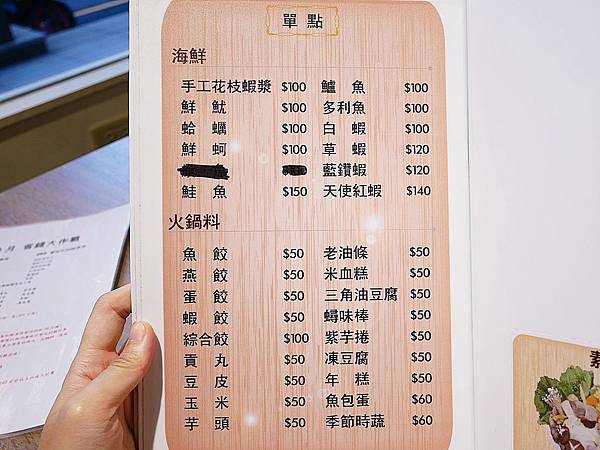 單 點
海鮮
手工花枝蝦漿 $100 鱸 魚 $100
鮮 魷 $100 多利魚 $100
蛤 蠣 $100 白 蝦 $100
鮮 蚵 $100 草 蝦 $120
藍鑽蝦 $120
鮭 魚 $150 天使紅蝦 $140
火鍋料
魚 餃 $50 老油條 $50
燕 餃 $50 米血糕 $50
蛋 餃 $50 三角油豆腐 $50
蝦 餃 $50 蟳味棒 $50
綜合餃 $100 紫芋捲 $50
貢 丸 $50 凍豆腐 $50
豆 皮 $50 年 糕 $50
玉 米 $50 魚包蛋 $60
芋 頭 $50 季節時蔬 $60
月 省錢大作戰
素